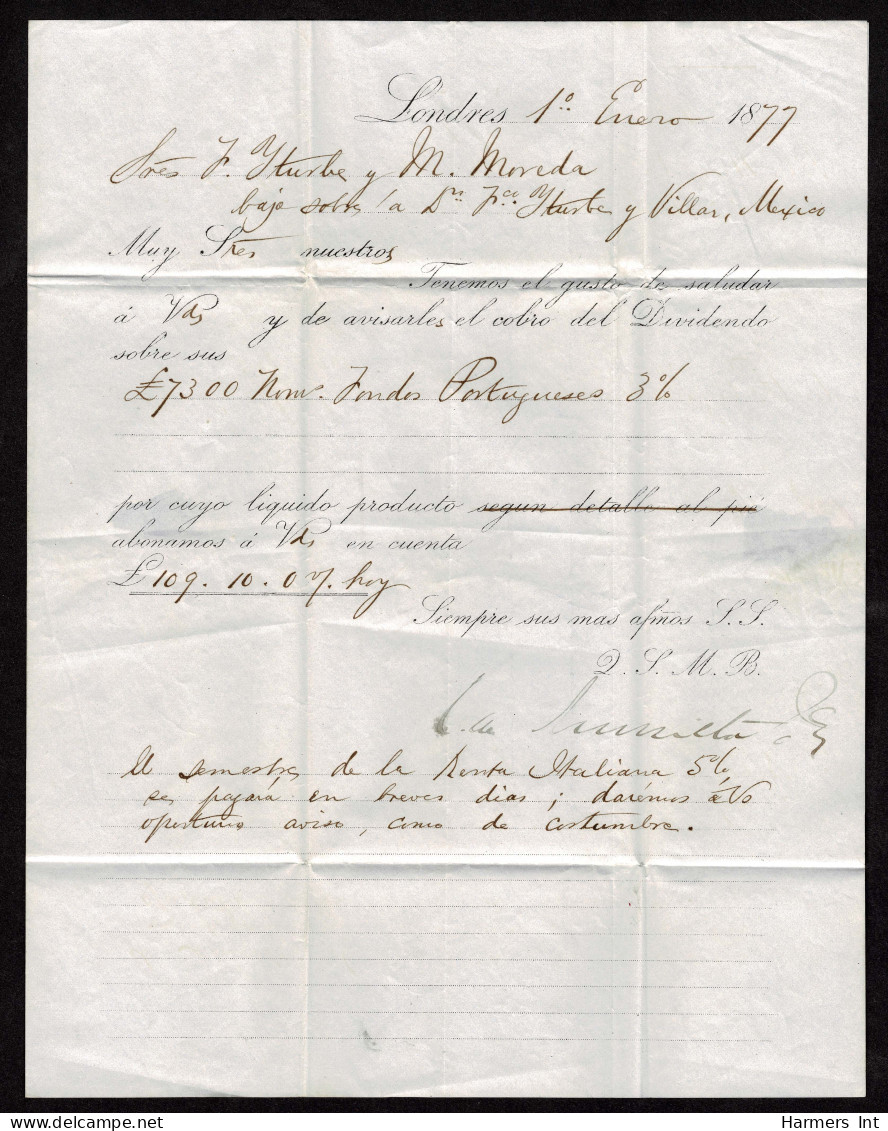 Londres 1º Enero 1877
Sres F. Yturbe y M. Moreda
bajo sobre á Dn Fco. Yturbe y Villar, Mexico
Muy Sres nuestros
Tenemos el gusto de saludar
á Vds y de avisarles el cobro del Dividendo
sobre sus
£7300 Nomˢ. Fondos Portugueses 3%
por cuyo liquido producto segun detalle al pié
abonamos á Vds en cuenta
£109.10.0 v/. hoy
Siempre sus mas afmos S.S.
Q. S. M. B.
C. de Murrieta
El semestre de la Renta Italiana 5%,
se pagará en breves dias; darémos á Vs
oportuno aviso, como de costumbre.
Harmers Int